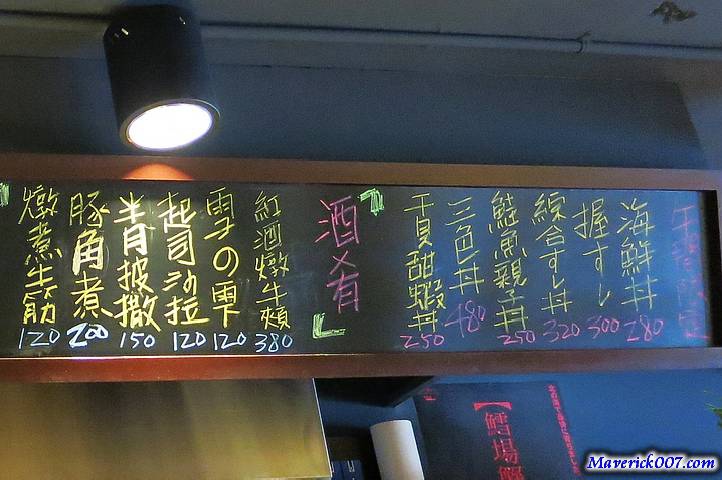 海鮮丼 280
握すし 300
綜合すし丼 320
鮭魚親子丼 250
三色丼 480
干貝甜蝦丼 250
酒肴
紅酒燉牛頰 380
雪子の雫 120
起司沙拉 120
半月披撒 150
豚角煮 200
燉煮牛筋 120
Maverick007.com